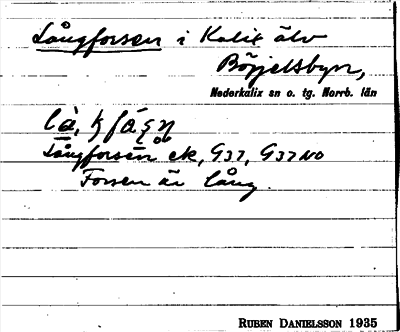 Långforsen i Kalix älv
Börjelsbyn,
Nederkalix sn o. tg. Norrb. län
Långforsen ek, G37, G37 NO
Forsen är lång.
RUBEN DANIELSSON 1935